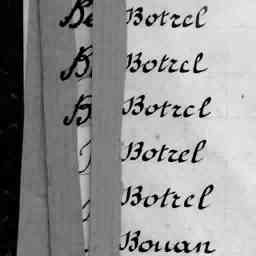 Botrel
Botrel
Botrel
Botrel
Botrel
Bouan